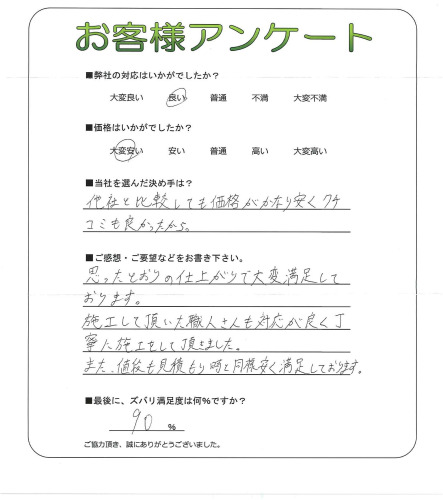 お客様アンケート
■弊社の対応はいかがでしたか?
大変良い 良い 普通 不満 大変不満
■価格はいかがでしたか?
大変安い 安い 普通 高い 大変高い
■当社を選んだ決め手は?
他社と比較しても価格がかなり安くクチ
コミも良かったから。
■ご感想・ご要望などをお書き下さい。
思ったとおりの仕上がりで大変満足して
おります。
施工して頂いた職人さんも対応が良く丁
寧に施工をして頂きました。
また、値段も見積もり時と同様安く満足しております。
■最後に、ズバリ満足度は何%ですか?
90 %
ご協力頂き、誠にありがとうございました。